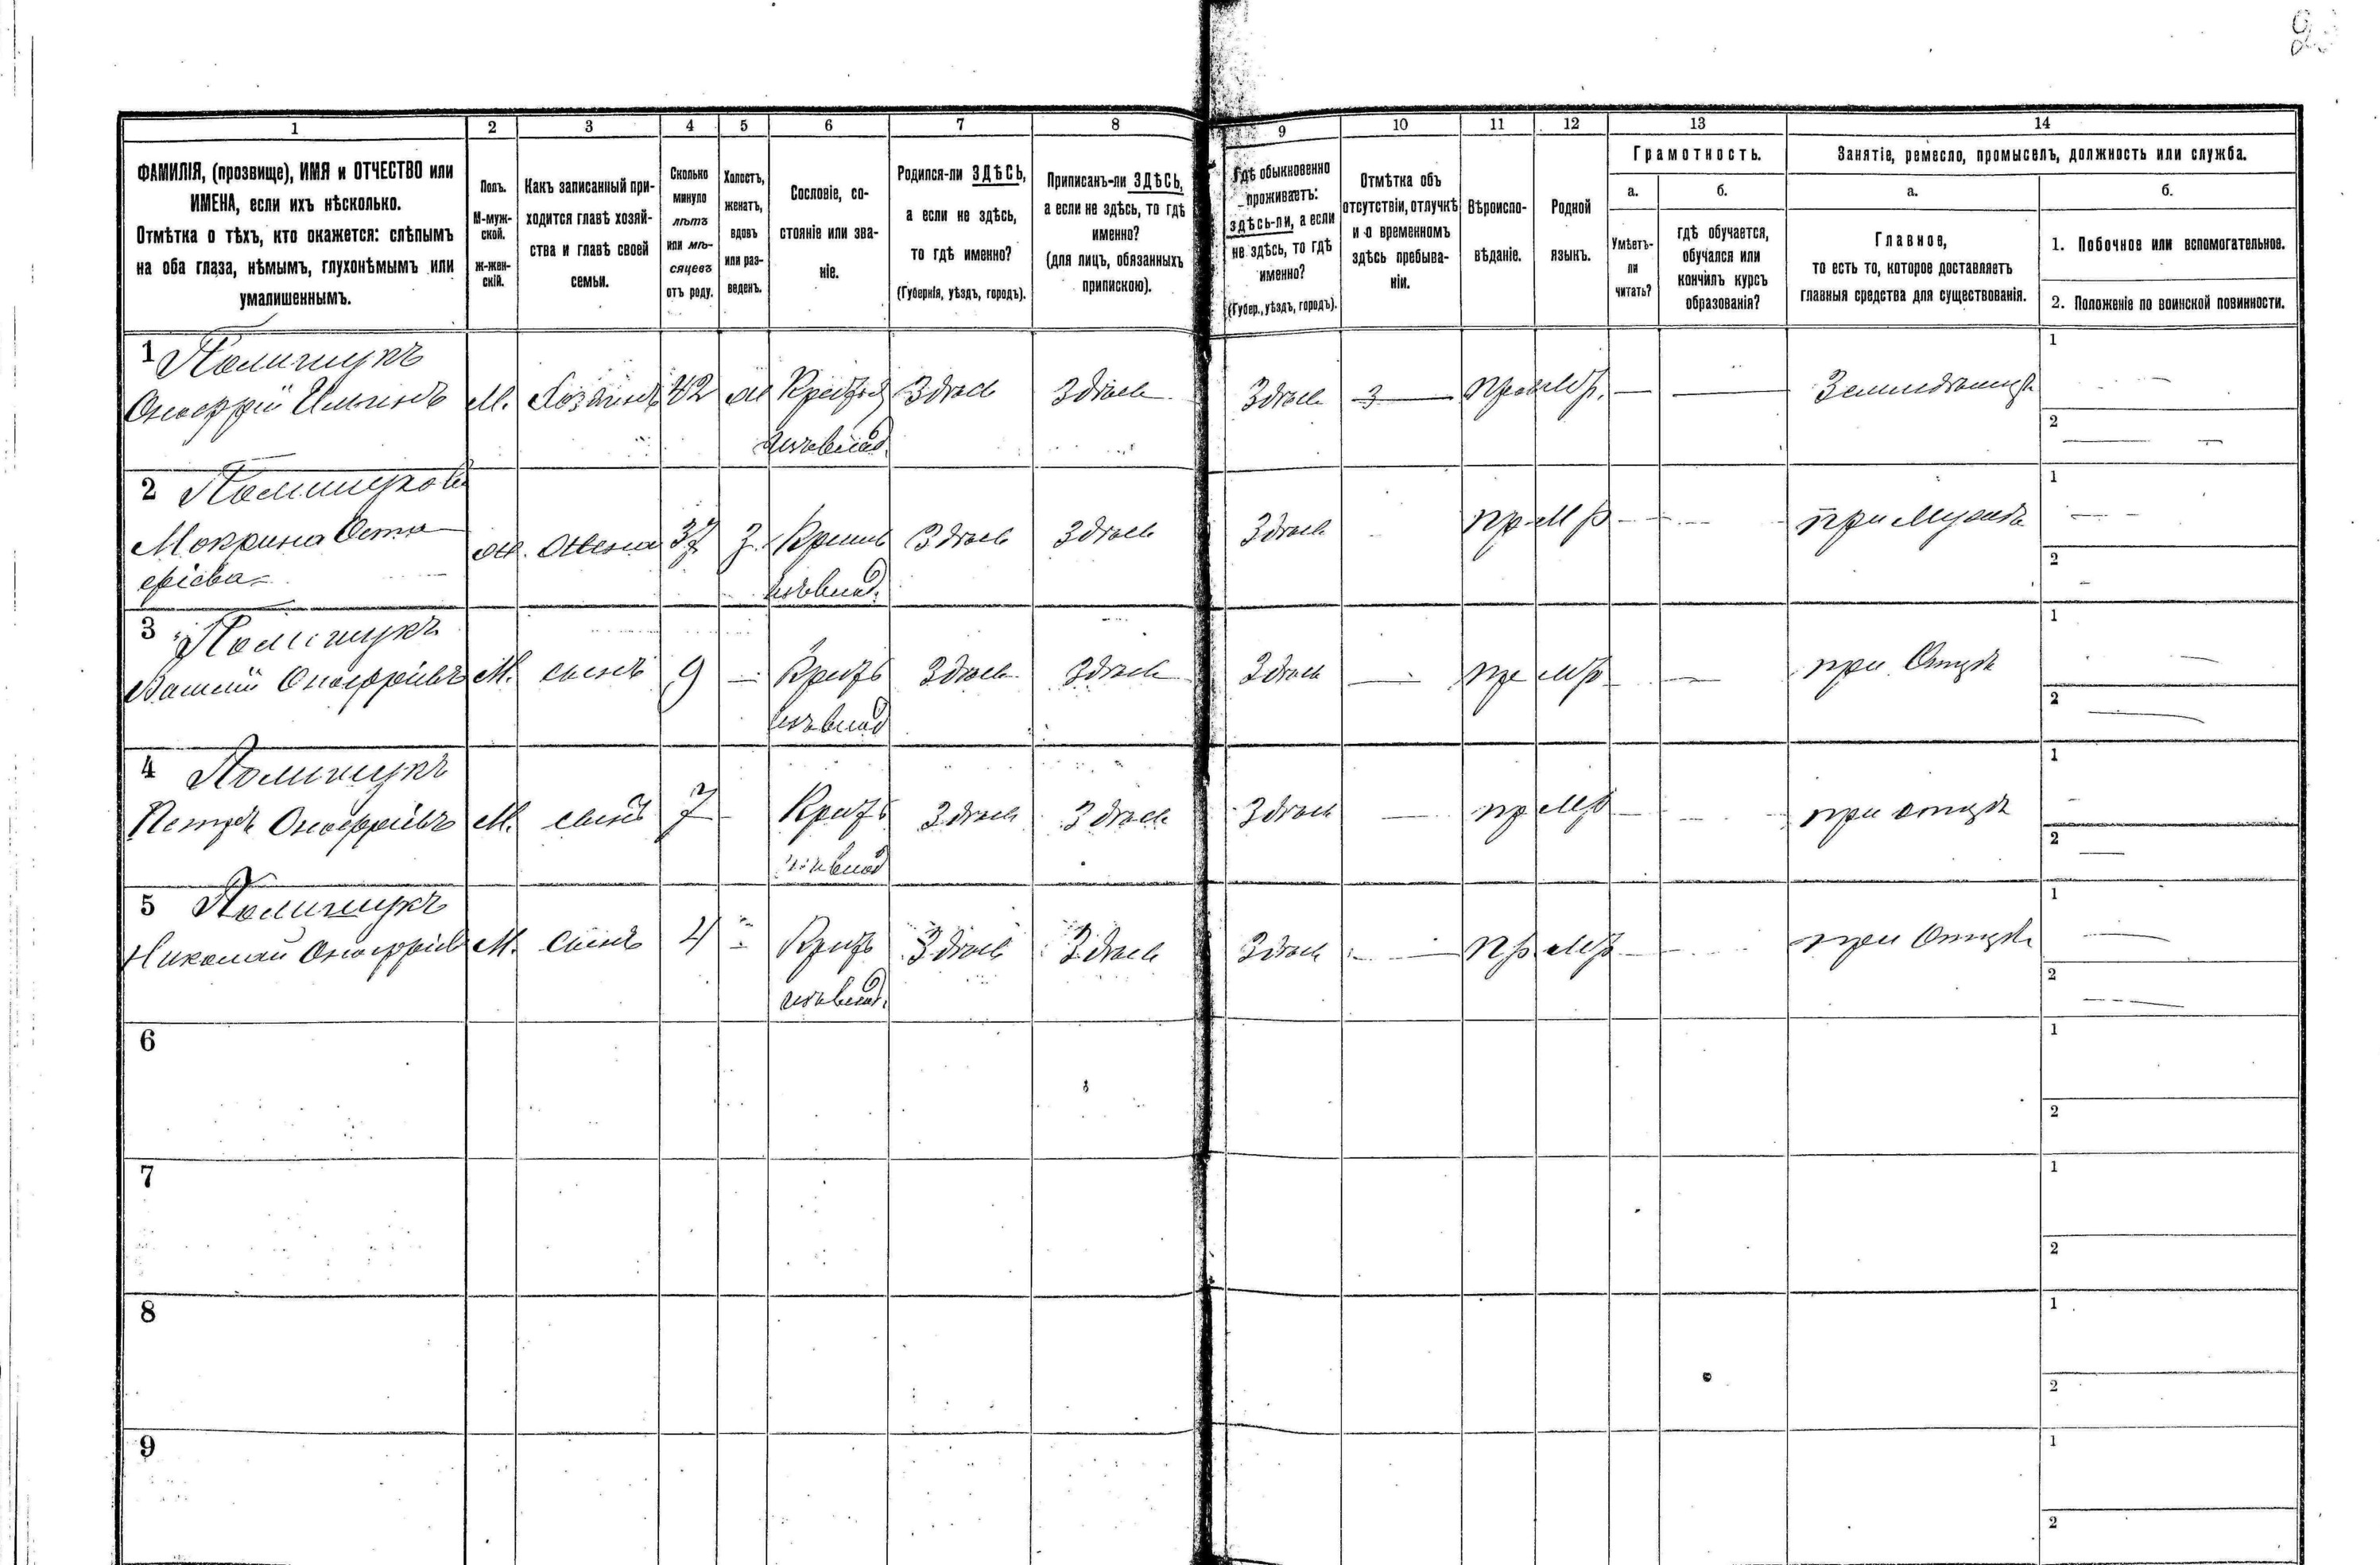 1 2 3 4 5 6 7 8 9 10 11 12 13 14
ФАМИЛІЯ, (прозвище), ИМЯ и ОТЧЕСТВО или
ИМЕНА, если ихъ нѣсколько.
Отмѣтка о тѣхъ, кто окажется: слѣпымъ
на оба глаза, нѣмымъ, глухонѣмымъ или
умалишеннымъ.
Полъ.
М-муж-
ской.
ж-жен-
скій.
Какъ записанный при-
ходится главѣ хозяй-
ства и главѣ своей
семьи.
Сколько
минуло
лѣтъ
или мѣ-
сяцевъ
отъ роду.
Холостъ,
женатъ,
вдовъ
или раз-
веденъ.
Сословіе, со-
стояніе или зва-
ніе.
Родился-ли ЗДѢСЬ,
а если не здѣсь,
то гдѣ именно?
(Губернія, уѣздъ, городъ).
Приписанъ-ли ЗДѢСЬ,
а если не здѣсь, то гдѣ
именно?
(для лицъ, обязанныхъ
припискою).
Гдѣ обыкновенно
проживаетъ:
здѣсь-ли, а если
не здѣсь, то гдѣ
именно?
(Губер., уѣздъ, городъ).
Отмѣтка объ
отсутствіи, отлучкѣ
и о временномъ
здѣсь пребыва-
ніи.
Вѣроиспо-
вѣданіе.
Родной
языкъ.
Грамотность.
а.
Умѣетъ-
ли
читать?
б.
гдѣ обучается,
обучался или
кончилъ курсъ
образованія?
Занятіе, ремесло, промыселъ, должность или служба.
а.
Главное,
то есть то, которое доставляетъ
главныя средства для существованія.
б.
1. Побочное или вспомогательное.
2. Положеніе по воинской повинности.
1 Полищукъ 1
Онофрій М. Хозяинъ 42 ж Здѣсь Здѣсь Здѣсь З — М р. — —
изъ влад. 2
2 1
Мокрина ж. жена 37 З. Здѣсь Здѣсь Здѣсь пр М р при Мужѣ
изъ влад. 2
3 Полищукъ 1
М. сынъ 9 — Здѣсь Здѣсь Здѣсь — пр М р — при Отцѣ
изъ влад 2
4 Полищукъ 1
Петръ М. сынъ 7 Здѣсь Здѣсь Здѣсь — пр М р при отцѣ
влад 2
5 Полищукъ 1
Николай М. сынъ 4 Здѣсь Здѣсь Здѣсь — пр М р при Отцѣ
изъ влад. 2
6 1
2
7 1
2
8 1
2
9 1
2